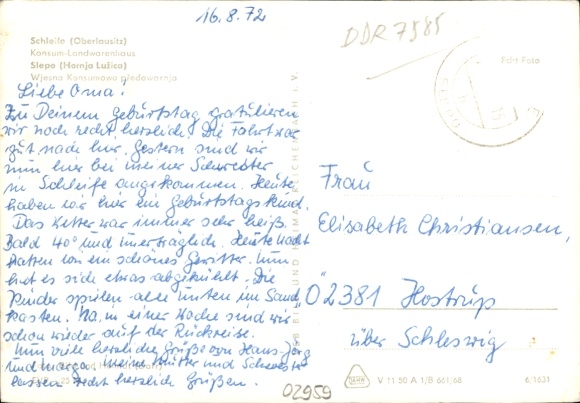 16.8.72
DDR 7585
Schleife (Oberlausitz)
Konsum-Landwarenhaus
Slepo (Hornja Łužica)
Wjesna Konsumowa předawarnja
Echt Foto
Liebe Oma!
Zu Deinem Geburtstag gratulieren
wir noch recht herzlich. Die Fahrt war
gut nach hier. Gestern sind wir
nun hier bei meiner Schwester
in Schleife angekommen. Heute
haben wir hier ein Geburtstagskind.
Das Wetter war immer sehr heiß.
Bald 40° und unerträglich. Heute Nacht
hatten wir ein schönes Gewitter. Nun
hat es sich etwas abgekühlt. Die
Kinder spielen alle unten im Sand
kasten. Na, in einer Woche sind wir
schon wieder auf der Rückreise.
Nun viele herzliche Grüße von Hans Jörg
und Marga. Meine Mutter und Schwester
lassen recht herzlich Grüßen.
Frau
Elisabeth Christiansen,
02381 Hostrup
über Schleswig
02959
V 11 50 A 1/B 661/68
6/1631